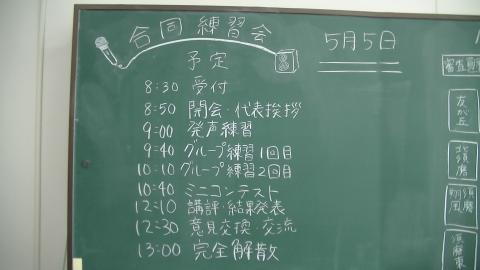 合同練習会
5月5日
予定
8:30 受付
8:50 開会・代表挨拶
9:00 発声練習
9:40 グループ練習1回目
10:10 グループ練習2回目
10:40 ミニコンテスト
12:10 講評・結果発表
12:30 意見交換・交流
13:00 完全解散
友が丘
北須磨
須磨翔風
須磨東